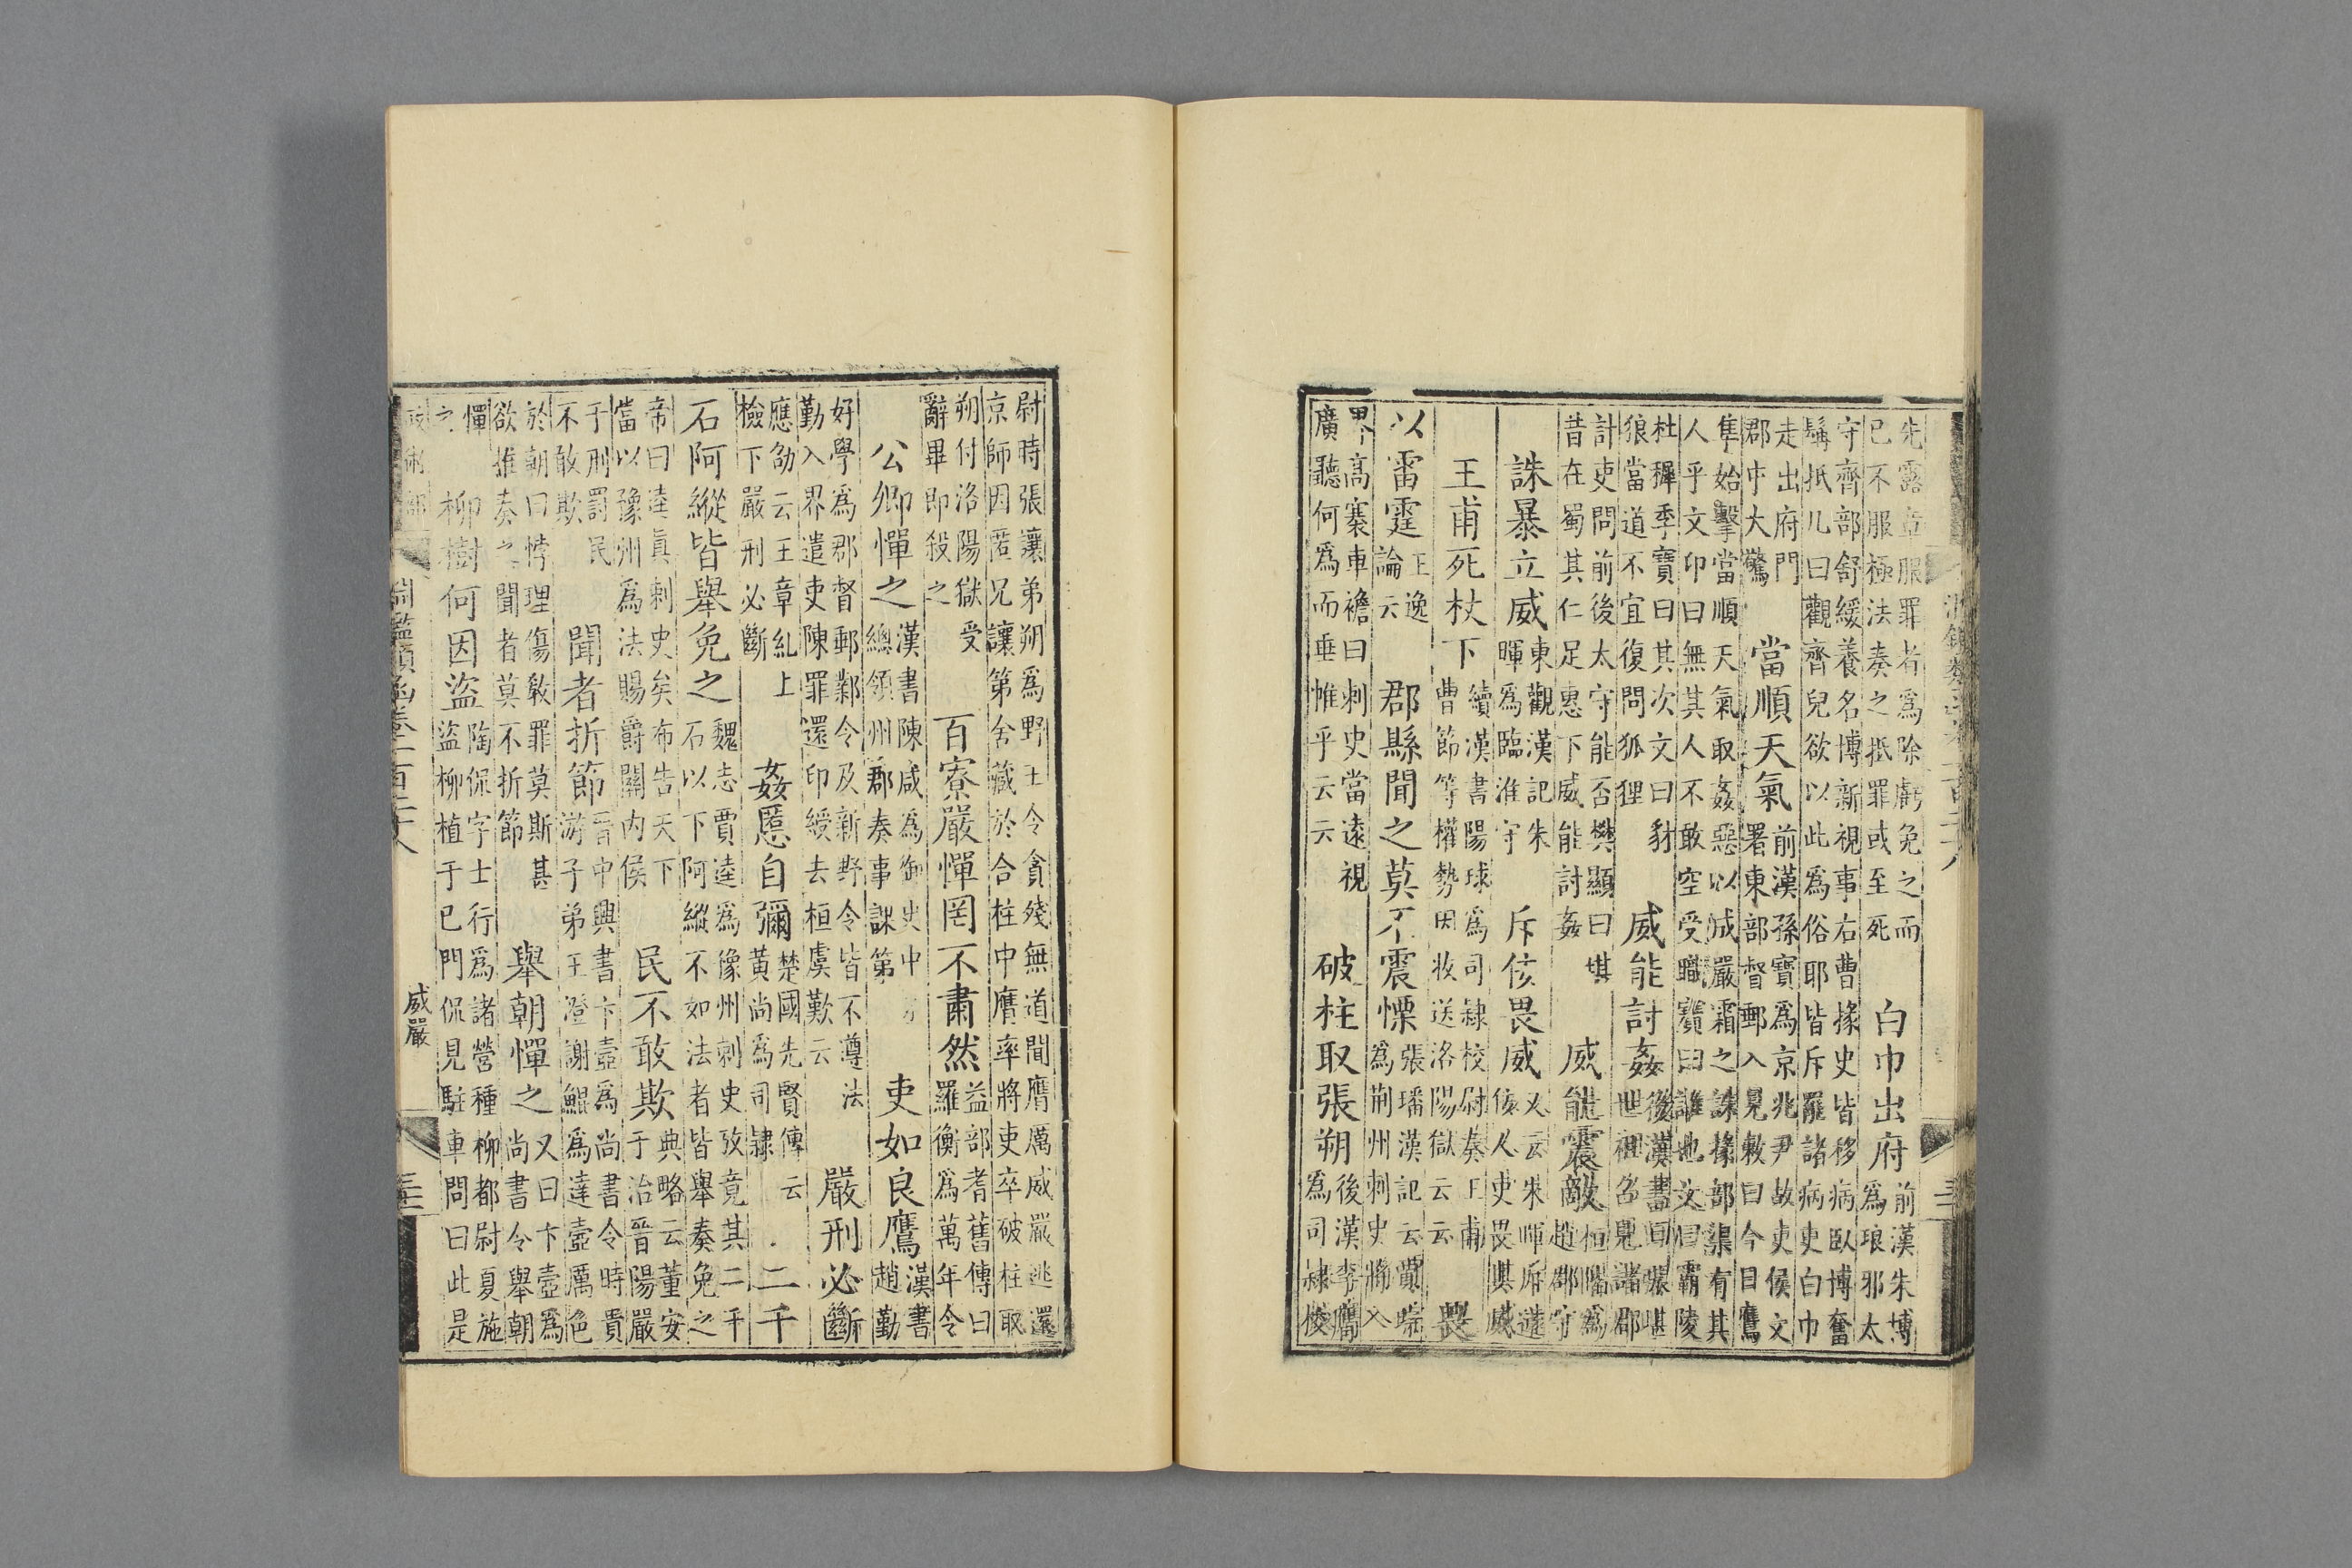 先露章服罪者爲除虧免之而
已不服極法奏之抵罪或至死
白巾出府
前漢朱博
爲琅邪太
守齊部舒緩養名博新視事右曹掾史皆移病臥博奮
髯抵几曰觀齊兒欲以此爲俗耶皆斥罷諸病吏白巾
走出府門
郡中大驚
當順天氣
前漢孫寶爲京兆尹故吏侯文
署東部督郵入見敕曰今日鷹
隼始擊當順天氣取姦惡以成嚴霜之誅掾部渠有其
人乎文卬曰無其人不敢空受職寶曰誰也文曰霸陵
杜穉季寶曰其次文曰豺
狼當道不宜復問狐狸
威能討姦
後漢書曰張堪
世祖召見諸郡
計吏問前後太守能否樊顯曰堪
昔在蜀其仁足惠下威能討姦
威能震敵
桓階爲
趙郡守
誅暴立威
東觀漢記朱
暉爲臨淮守
斥侅畏威
又云朱暉斥遠
侅人吏畏其威
王甫死杖下
續漢書陽球爲司隷校尉奏王甫
曹節等權勢因收送洛陽獄云云
畏
以雷霆
王逸
論云
郡縣聞之莫不震慄
張璠漢記云賈琮
爲荆州刺史將入
界高褰車襜曰刺史當遠視
廣聽何爲而垂帷乎云云
破柱取張朔
後漢李膺
爲司隷校
尉時張讓弟朔爲野王令貪殘無道聞膺厲威嚴逃還
京師因匿兄讓第舍藏於合柱中膺率將吏卒破柱取
朔付洛陽獄受
辭畢即殺之
百寮嚴憚罔不肅然
益部耆舊傳曰
羅衡爲萬年令
公卿憚之
漢書陳咸爲御史中
總領州郡奏事課第
吏如良鷹
漢書
趙勤
好學爲郡督郵鄴令及新野令皆不遵法
勤入界遣吏陳罪還印綬去桓虞歎云
嚴刑必斷
應劭云王章糺上
檢下嚴刑必斷
姦慝自彌
楚國先賢傳云
黃尚爲司隷
二千
石阿縱皆舉免之
魏志賈逵爲豫州刺史攷竟其二千
石以下阿縱不如法者皆舉奏免之
帝曰逵眞刺史矣布告天下
當以豫州爲法賜爵關內侯
民不敢欺
典略云董安
于治晉陽嚴
于刑罰民
不敢欺
聞者折節
晉中興書卞壼爲尚書令時貴
游子弟王澄謝鯤爲達壼厲色
於朝曰悖理傷敎罪莫斯甚
欲推奏之聞者莫不折節
舉朝憚之
又曰卞壼爲
尚書令舉朝
憚
之
柳樹何因盜
陶侃字士行爲諸營種柳都尉夏施
盜柳植于已門侃見駐車問曰此是
淵鑑類函卷一百二十八
威嚴